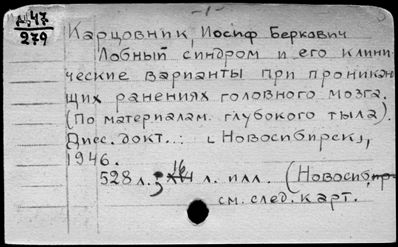 - 1 -
Д 47
279
Карцовник, Иосиф Беркович
Лобный синдром и его клини-
ческие варианты при проникаю-
щих ранениях головного мозга.
(По материалам глубокого тыла).
Дисс. докт..: [Новосибирск],
1946.
528 л.; 16 л. илл. (Новосиб.
см. след. карт.